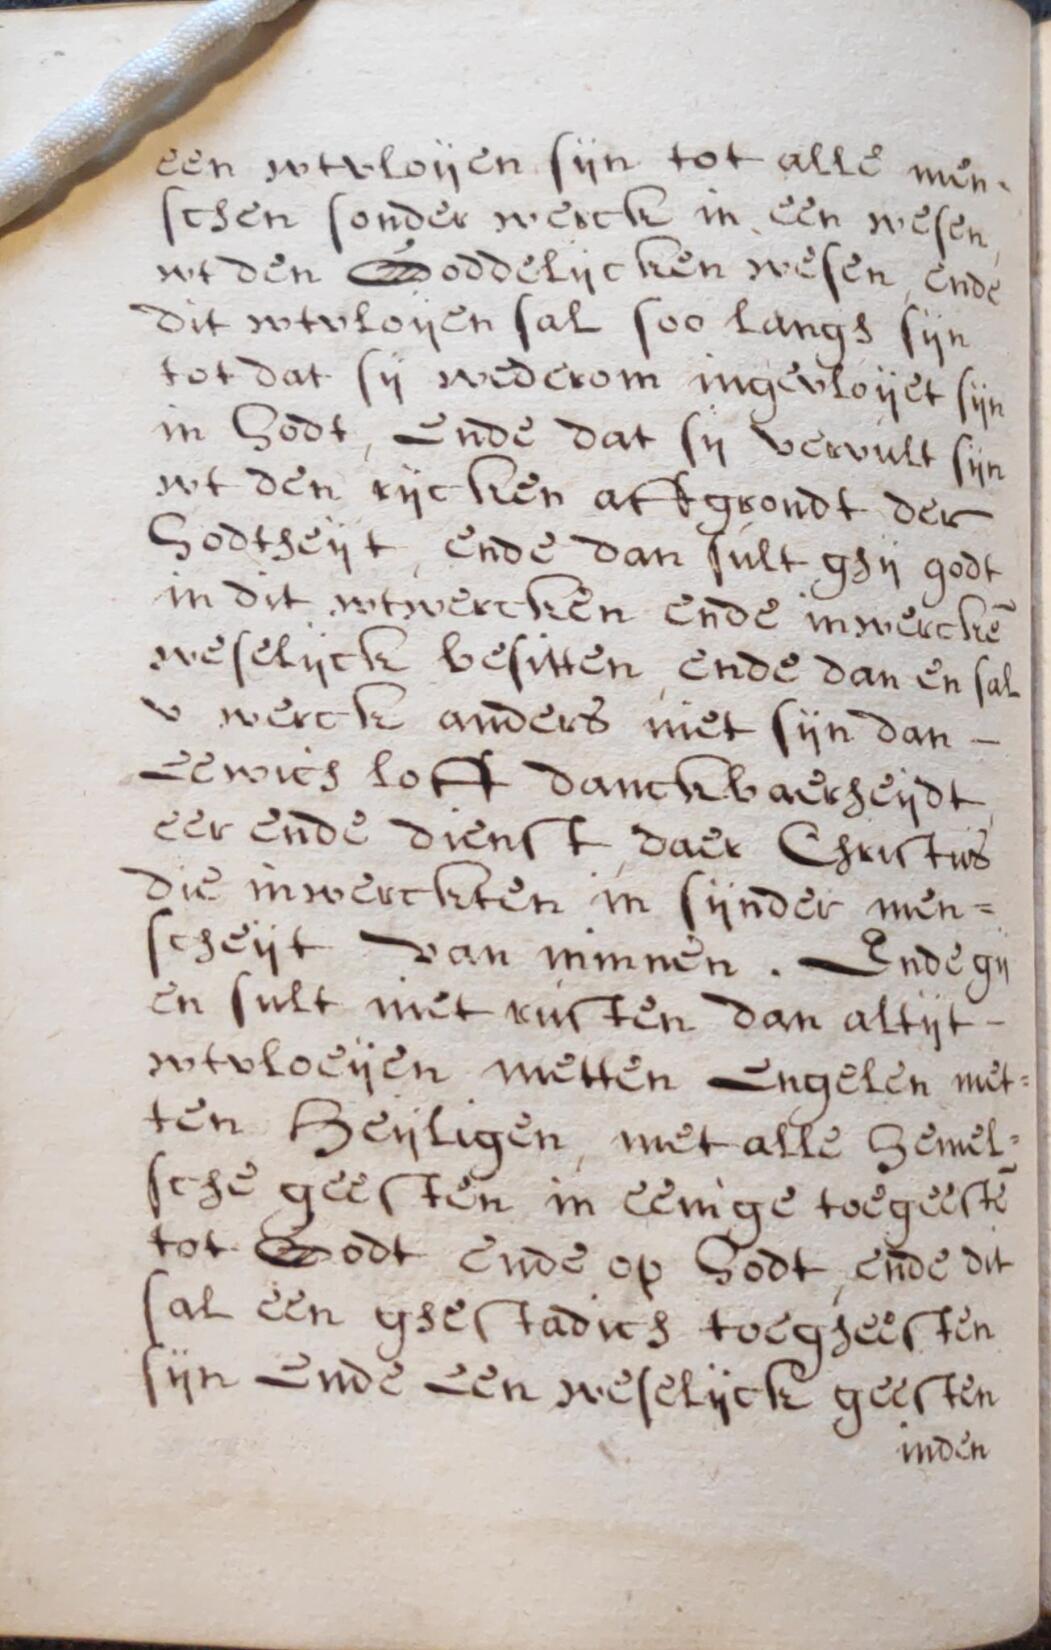 een wtvloijen sijn tot alle men-
schen sonder werck in een wesen,
wt den Goddelijcken wesen, ende
dit wtvloijen sal soo langh sijn
tot dat sij wederom ingevloijet sijn
in Godt, Ende dat sij vervult sijn
wt den rijcken affgrondt der
Godtheijt, ende dan sult ghij godt
in dit wtwercken ende inwerckē
weselijck besitten, ende dan en sal
v werck anders niet sijn dan –
Eewich loff danckbaerheijdt,
eer ende dienst, daer Christus
die inwerckten in sijnder men=
scheijt van minnen. Ende gij
en sult niet rusten dan altijt –
wtvloeijen metten Engelen met=
ten Heijligen, met alle Hemel=
sche geesten in eenige toegeestē
tot Godt ende op Godt, ende dit
sal een ghestadich toegheesten
sijn Ende Een weselijck geesten
inden